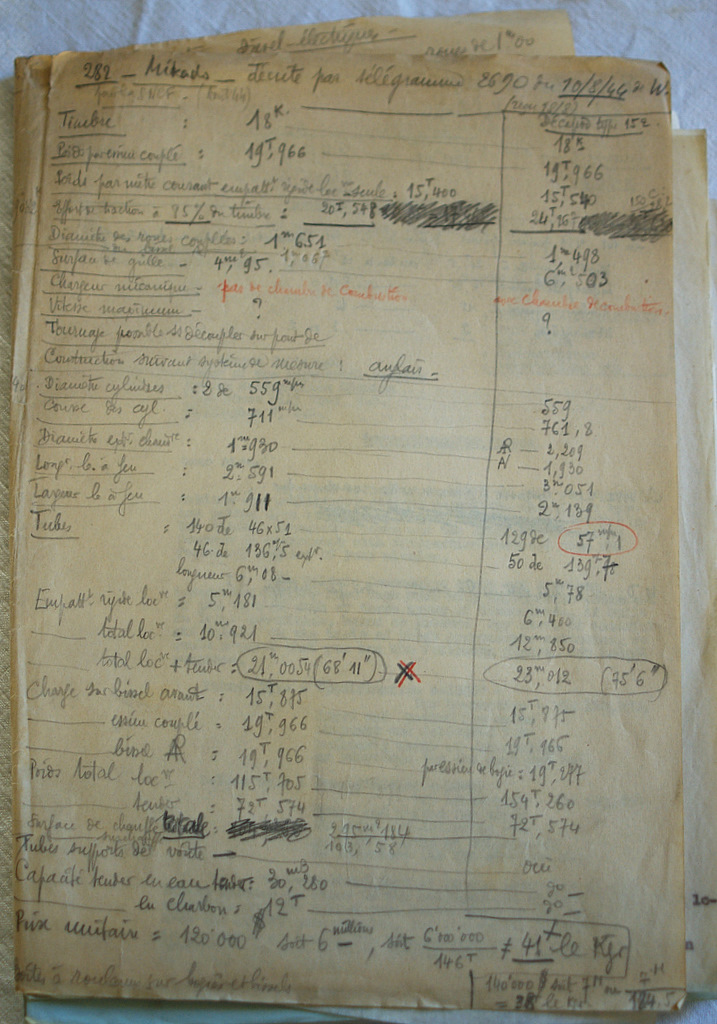 Diesel électrique -
roues de 1m00
282 - Mikado - décrite par télégramme 2690 du 10/8/44 de W.
par la SNCF -
Décapod type 152
Timbre : 18K. 18K
Poids par essieu couplé : 19T,966 19T,966
Poids par mètre courant empattt rigide locve seule : 15T,400 15T,540
Effort de traction à 85% du timbre : 20T,548 24T,267
Diamètre des roues couplées : 1m651 1m,498
Surface de grille - 4m2,95. 6m2,503
Chargeur mécanique - pas de chambre de combustion avec chambre de combustion.
Vitesse maximum - ? ?
Tournage possible ss découpler sur pont de
Construction suivant système de mesure : anglais -
Diamètre cylindres : 2 de 559m/m 559
Course des cyl. : 711m/m 761,8
Diamètre extr. chaudre : 1m930 AR - 2,209
AV - 1,930
Longr b. à feu : 2m.591 3m.051
Largeur b. à feu : 1m.911 2m,139
Tubes = 140 de 46x51 129 de 57m/m,1
46 de 136,5 extr. 50 de 139,7
longueur 6m,08 - 5m,78
Empattt rigide locve = 5m,181 6m,400
total locve = 10m.921 12m,850
total locve + tender = 21m,0054 (68'11") X 23m,012 (75'6")
Charge sur bissel avant : 15T,875 15T,875
essieu couplé = 19T,966 19T,966
bissel AR = 19T,966 pression de bogie = 19T,277
Poids total locve : 115T,705 154T,260
tender : 72T,574 72T,574
Surface de chauffe totale :
Tubes supports de voûte - oui
Capacité tender en eau tender = 30m3,280 do -
en charbon = 12T do -
Prix unitaire = 120'000 $ soit 6 millions -, soit 6'000'000 / 146T ≠ 41 le Kgr
Boîtes à rouleaux sur bogies et bissels
140'000 $ soit 7M